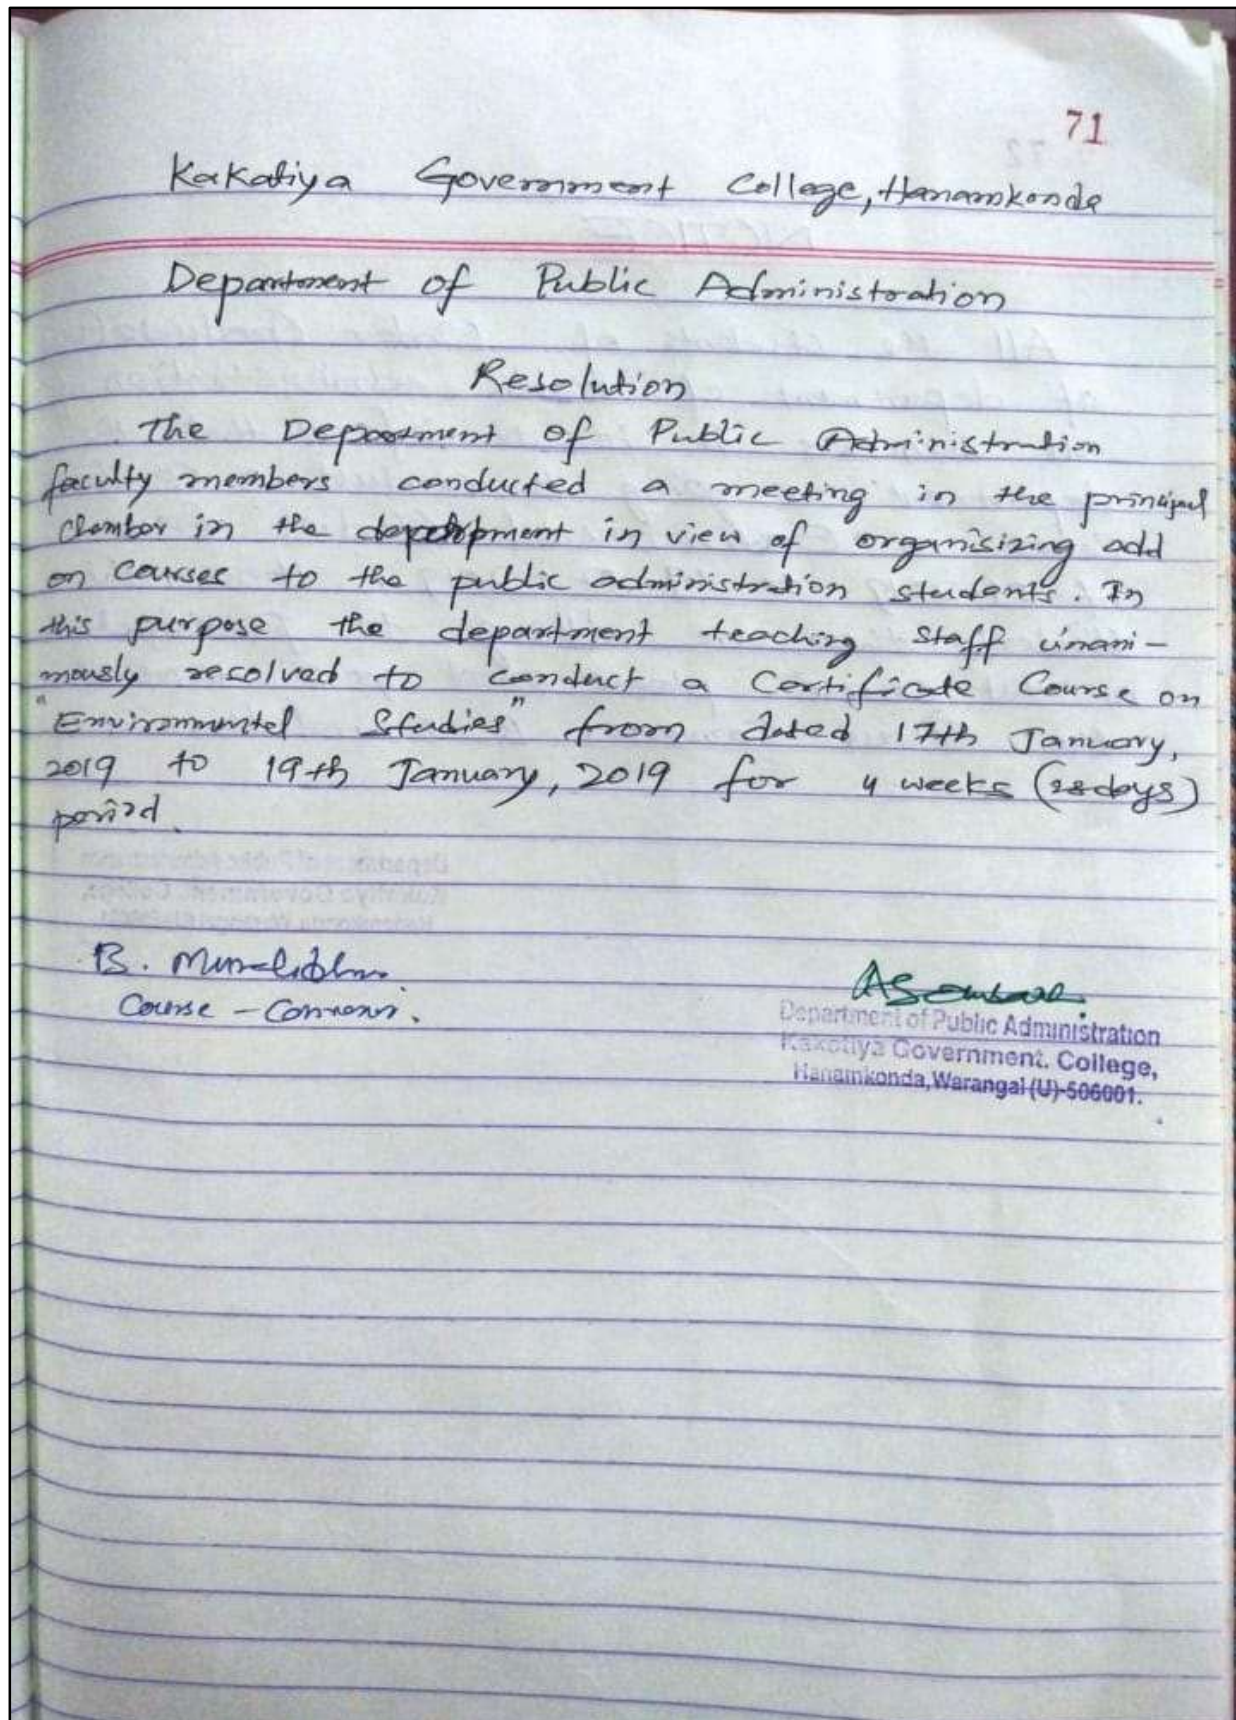 71
Kakatiya Government College, Hanamkonda
Department of Public Administration
Resolution
The Department of Public Administration
faculty members conducted a meeting in the principal
Chamber in the department in view of organisizing add
on courses to the public administration students. In
this purpose the department teaching staff unani-
mously resolved to conduct a Certificate Course on
"Environmental Studies" from dated 17th January,
2019 to 19th January, 2019 for 4 weeks (28days)
period.
B.
Course - Convenor.
Department of Public Administration
Kakatiya Government. College,
Hanamkonda, Warangal (U)-506001.